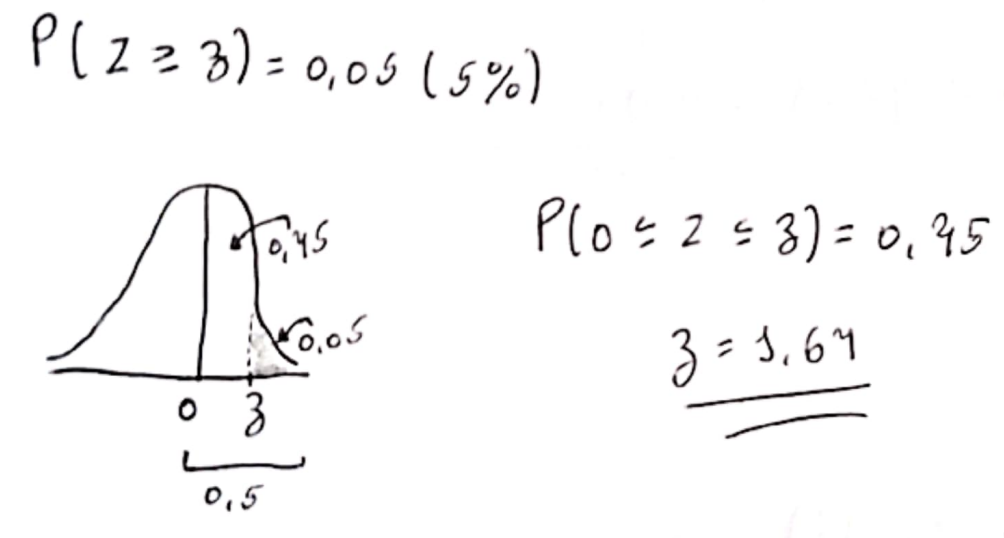 P(Z ≥ z) = 0,05 (5%)
0,45
0,05
0 z
0,5
P(0 ≤ Z ≤ z) = 0,45
z = 1,64